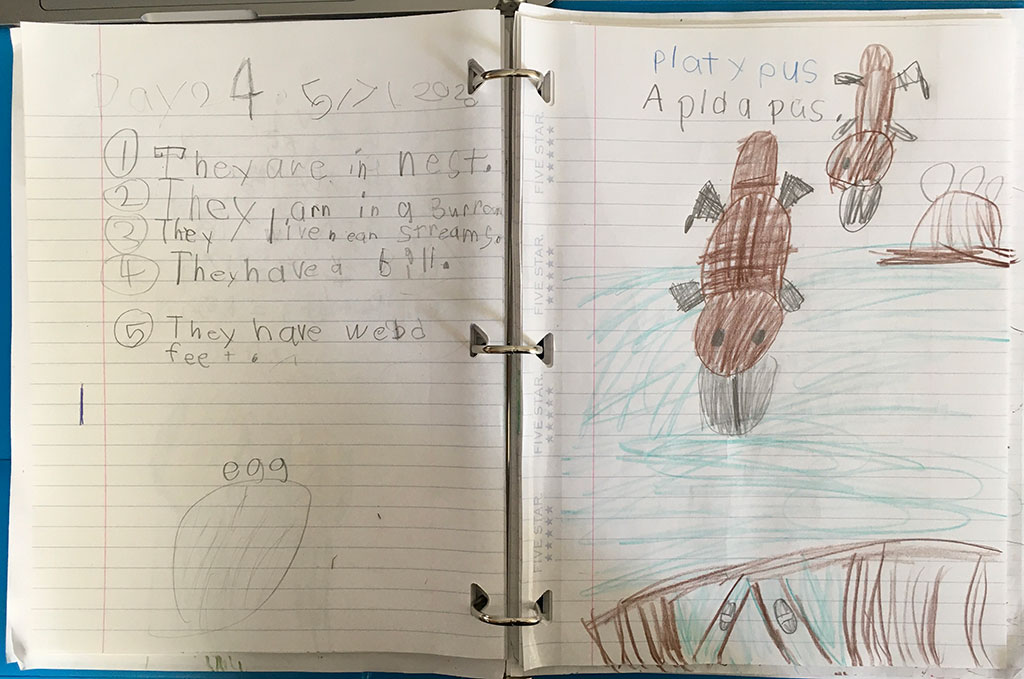 Day 24 5/71 2020
① They are in nest.
② They arn in a Burrow
③ They live near streams.
④ They have a bill.
⑤ They have webd
feet.
egg
platypus
A pldapus.
FIVE STAR.
FIVE STAR.
FIVE STAR.
FIVE STAR.